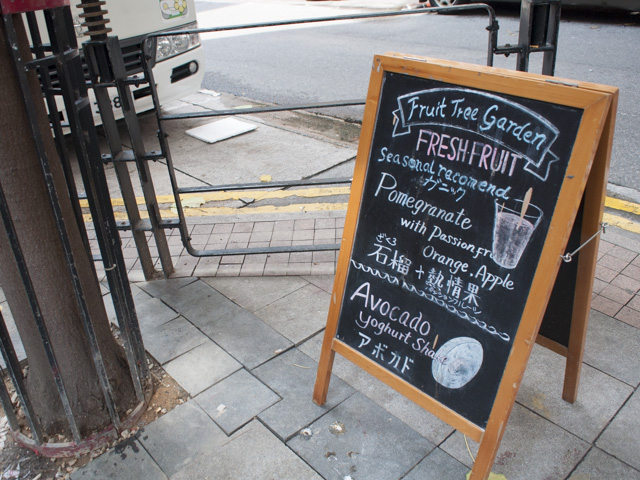 Fruit Tree Garden
FRESH FRUIT
Seasonal racomend
ガニック
Pomegranate
with Passionfr
Orange. Apple
ざくろ
石榴 + 熱情果
Avocado
Yoghurt Sha
アボカド
8